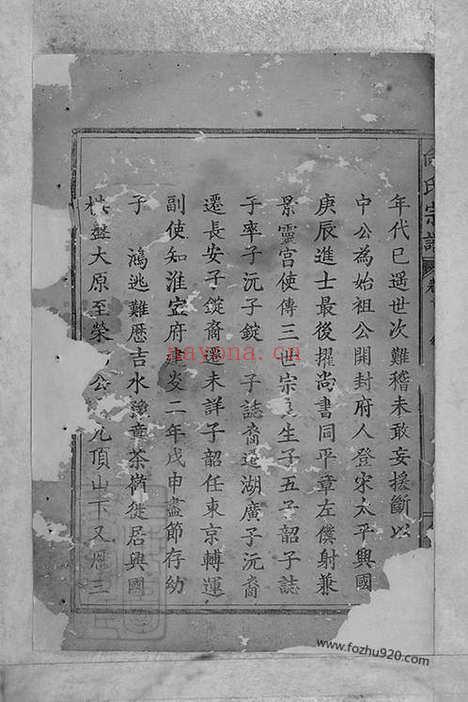 氏宗譜
卷
年代已遥世次難稽未敢妄援斷以
中公為始祖公開封府人登宋太平興國
庚辰進士最後擢尚書同平章左僕射兼
景靈宮使傳三世宗生子五子韶子誌
子率子沅子錠子誌裔遷湖廣子沅裔
遷長安子錠裔遷未詳子韶任東京轉運
副使知淮寧府建炎二年戊申盡節存幼
子鴻逃難歷吉水豫章茶徙居興國
盤大原至榮公九頂山下又歷三
nayona.cn
www.fozhu920.com